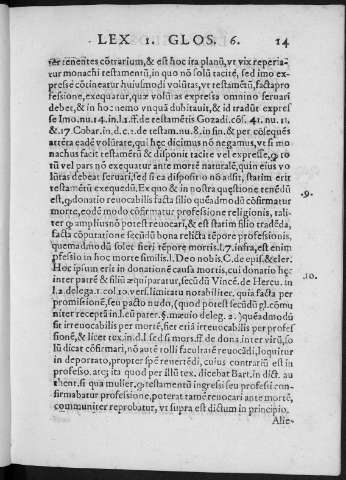 LEX 1. GLOS. 6. 14
ser tenentes cõtrarium,& est hoc ita planũ,vt vix reperia-
tur monachi testamentũ,in quo nõ solũ tacitè, sed imo ex-
pressè cõtineatur huiusmodi volũtas,vt testamẽtũ, factapro
fessione,exequatur,quæ volũtas expressa omnino seruari
debet,& in hoc nemo vnquã dubitauit,& id tradũt expres
se Imo.nu.14.in l.1.ff.de testamẽtis Gozadi.cõs. 41. nu.11.
& 17.Cobar.in.d.c.2.de testam.nu.8.in fin.& per cõsequẽs
attẽta eadẽ volũtate,qui hęc dicimus nõ negamus,vt si mo
nachus facit testamẽtũ & disponit tacitè vel expressè,q̃ to
tũ vel pars nõ exequatur ante mortẽ naturalẽ,quin eius vo
lũtas debeat seruari,sed si ea dispositio nõ adsit, statim erit
testamẽtũ exequẽdũ.Ex quo & in nostra quęstione tenẽdũ
est,q̃ donatio reuocabilis facta filio quẽadmodũ cõfirmatur
morte,eodẽ modo cõfirmatur professione religionis, tali-
ter q̃ ampliusnõ potest reuocari,& est statim filio tradẽda,
facta cõputatione secũdũ bona relicta tẽpore professionis,
quemadmodũ solet fieri tẽpore mortis.l.7.infra,est enim
p̃fessio in hoc morte similis.l.Deo nobis.C.de epis.&cler.
Hoc ipsum erit in donatione causa mortis,cui donatio hęc
inter patrẽ & filiũ æquiparatur,secũdũ Vincẽ.de Hercu.in
l.2.delega.1.col.20.vers.limitatu notabiliter. quia facta per
promissionẽ,seu pacto nudo,(quod põtest secũdũ pl.cõmu
niter receptã in l.eũ pater.§.mæuio deleg.2.)quẽadmodũ
sit irreuocabilis per mortẽ,fiet etiã irreuocabilis per profes
sionẽ,& licet tex.in.d.l.sed si mors.ff de dona.inter virũ,so
lũ dicat cõfirmari,nõ autẽ tolli facultatẽ reuocãdi,loquitur
in deportato,propter spẽ reuertẽdi, cuius contrariũ est in
professo. atq; ita quod per illũ tex. dicebat Bart.in dict. au
thent.si qua mulier.q̃ testamentũ ingressi seu professi con-
firmabatur professione,poterat tamẽ reuocari ante mortẽ,
communiter reprobatur, vt supra est dictum in principio.
Alie-
.9.
.10.